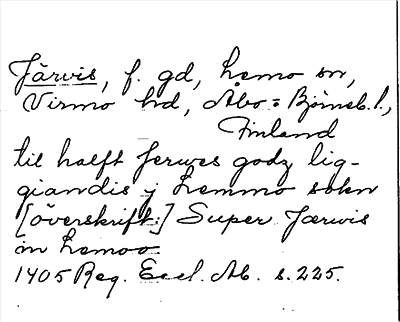 Järvis, f. gd, Lemo sn,
Virmo hd, Åbo = Björneb. l.,
Finland
til halft Jerwes godz lig-
giandis j Lemmo sokn
[överskrift:] Super Jærwis
in Lemoo.
1405 Reg. Eccl. Ab. s. 225.